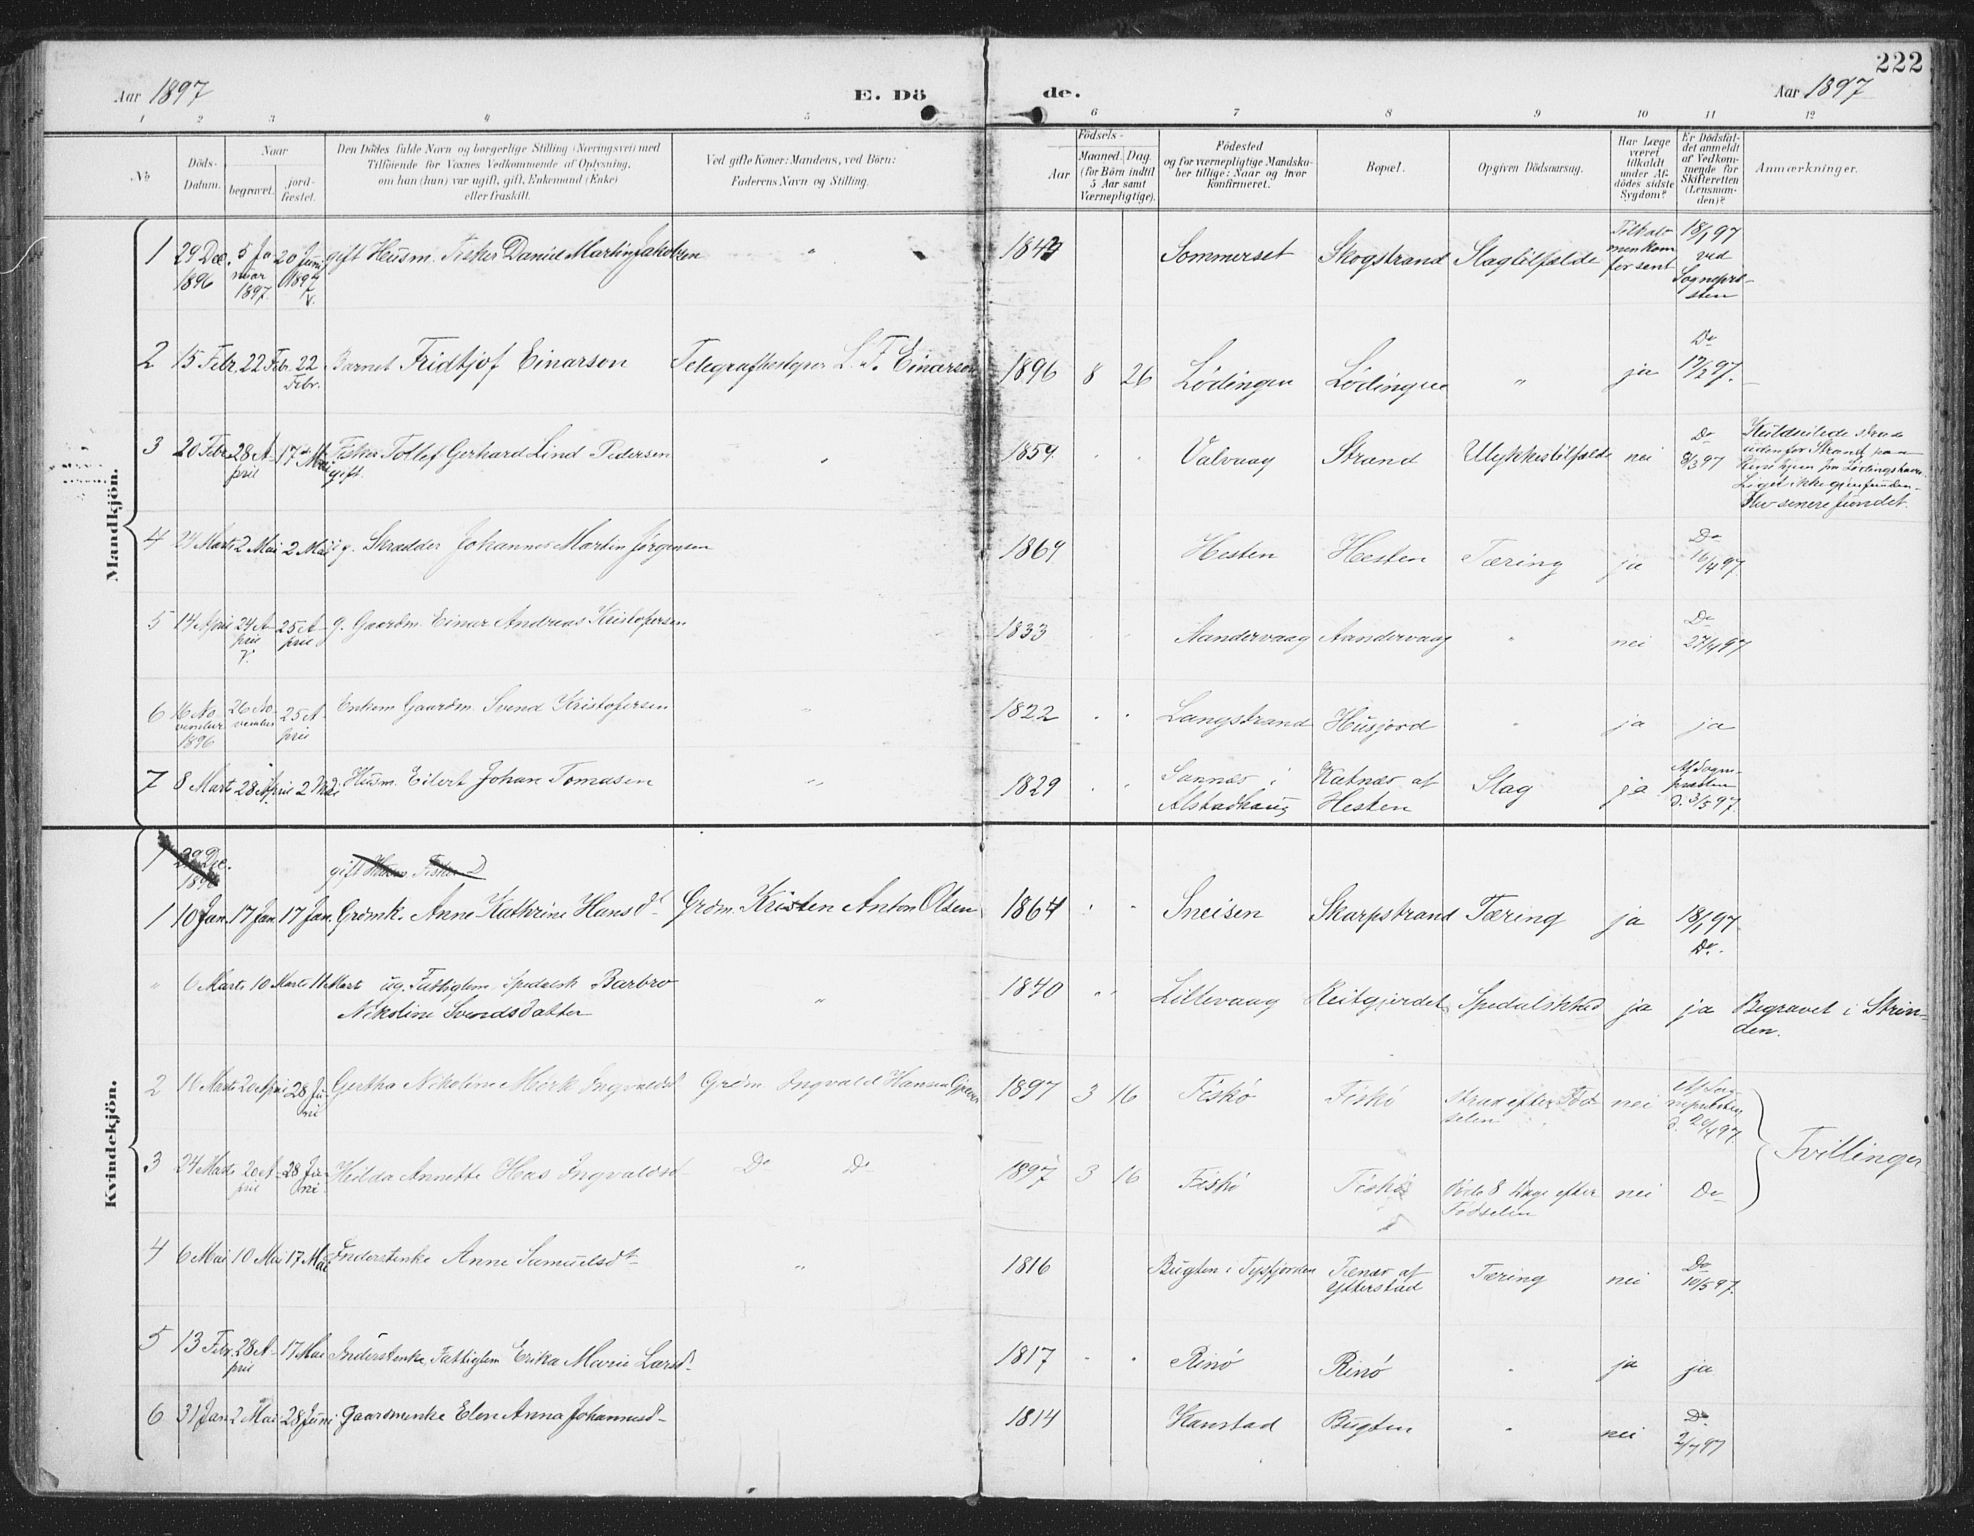 222
Aar 1897 E. Dö de. Aar 1897
1 2 3 4 5 6 7 8 9 10 11 12
No
Döds-Datum.
Naar
begravet.
jord-fæstet.
Den Dödes fulde Navn og borgerlige Stilling (Næringsvei) med
Tilföiende for Voxnes Vedkommende af Oplysning,
om han (hun) var ugift, gift, Enkemand (Enke)
eller fraskilt.
Ved gifte Koner: Mandens, ved Börn:
Faderens Navn og Stilling.
Födsels-
Aar
Maaned. Dag.
(for Börn indtil
5 Aar samt
Værnepligtige).
Födested
og for værnepligtige Mandska-
ber tillige: Naar og hvor
konfirmeret.
Bopæl.
Opgiven Dödsaarsag.
Har Læge
været
tilkaldt
under Af-
dödes sidste
Sygdom?
Er Dödsfal-
det anmeldt
af Vedkom-
mende for
Skifteretten
(Lensman-
den)?
Anmærkninger.
Mandkjön.
1 29 Dec. 1896 5 Januar 1897. 20 Juni 1897 gift Husm. Fisker Daniel Martin Jakobsen " Sommerset Skogstrand Slagtilfælde Tilkaldt men kom for sent 18/1 97 ved Sognepresten
2 15 Febr. 22 Febr. 22 Febr. Barnet Fridtjof Einarson Telegrafbestyrer L. F. Einarson 1896 8 26 Lödingen Lödingen " ja Do 17/2 97.
3 20 Febr. 28 April 17de Mai Fisker Tollef Gerhard Lind Pedersen gift. " 1859 Valvaag Strand Ulykkestilfælde nei Do 8/3 97 Kuldseilede
udenfor Strand paa
Liget ikke gjenfunden.
Blev senere fundet.
4 24 Marts 2 Mai 2 Mai g. Skrædder Johannes Martin Jörgensen 1864 Hesten Hesten Tæring ja Do 16/4 97
5 14 April 24 April 25 April g. Gaardm. Einar Andreas Kristofersen 1833 Aandervaag Aandervaag " nei Do 27/4 97
6 16 November 1896 26 November 25 April Enkem. Gaardm. Svend Kristofersen " 1822 Langstrand Husjord " ja ja
7 8 Marts 28 April 2 Mai Husm. Eilert Johan Tomasen " 1829 Sannæs i Alstadhaug Katnæs af Hesten Slag ja Af Sognepræsten d. 3/5 97.
Kvindekjön.
1 29 Dec. 1896 gift Husm. Fisker D
1 10 Jan. 17 Jan. 17 Jan. Grdmk. Anne Kathrine Hansdt. Grdm. Kristen Anton Olsen 1864 Sneisen Skarpstrand Tæring ja 18/1 97 Do.
" 6 Marts 10 Marts 11 Mart ug. Fattiglem Spedalsk Barbro
Nikoline Svendsdatter " 1840 Lillevaag Reitgjerdet Spedalskhed ja ja Begravet i Strinden.
2 16 Marts 20 April 28 Juni Gertha Nikoline Mörk Ingvaldsd. Grdm. Ingvald Hansen 1897 3 16 Fiskö Fiskö Strax efter Födselen nei Af Sognepræsten d. 20/4 97.
3 24 Marts 20 April 28 Juni Hilda Annette Has Ingvaldsd. Do Do 1897 3 16 Fiskö Fiskö Döde 8 Dage efter Födselen nei Do
Tvillinger
4 6 Mai 10 Mai 17 Mai Inderstenke Anne Samuelsdt. " 1816 Bugten i Tysfjorden Tienæs af Ytterstad Tæring nei Do 10/5 97.
5 13 Febr. 28 April 17 Mai Inderstenke Fattiglem Erika Marie Larsd. 1817 Rinö Rinö " ja ja
6 31 Jan 2 Mai 28 Juni Gaardmenke Elen Anna Johannesd. 1814 Kanstad Bugten " nei Do. 2/7 97